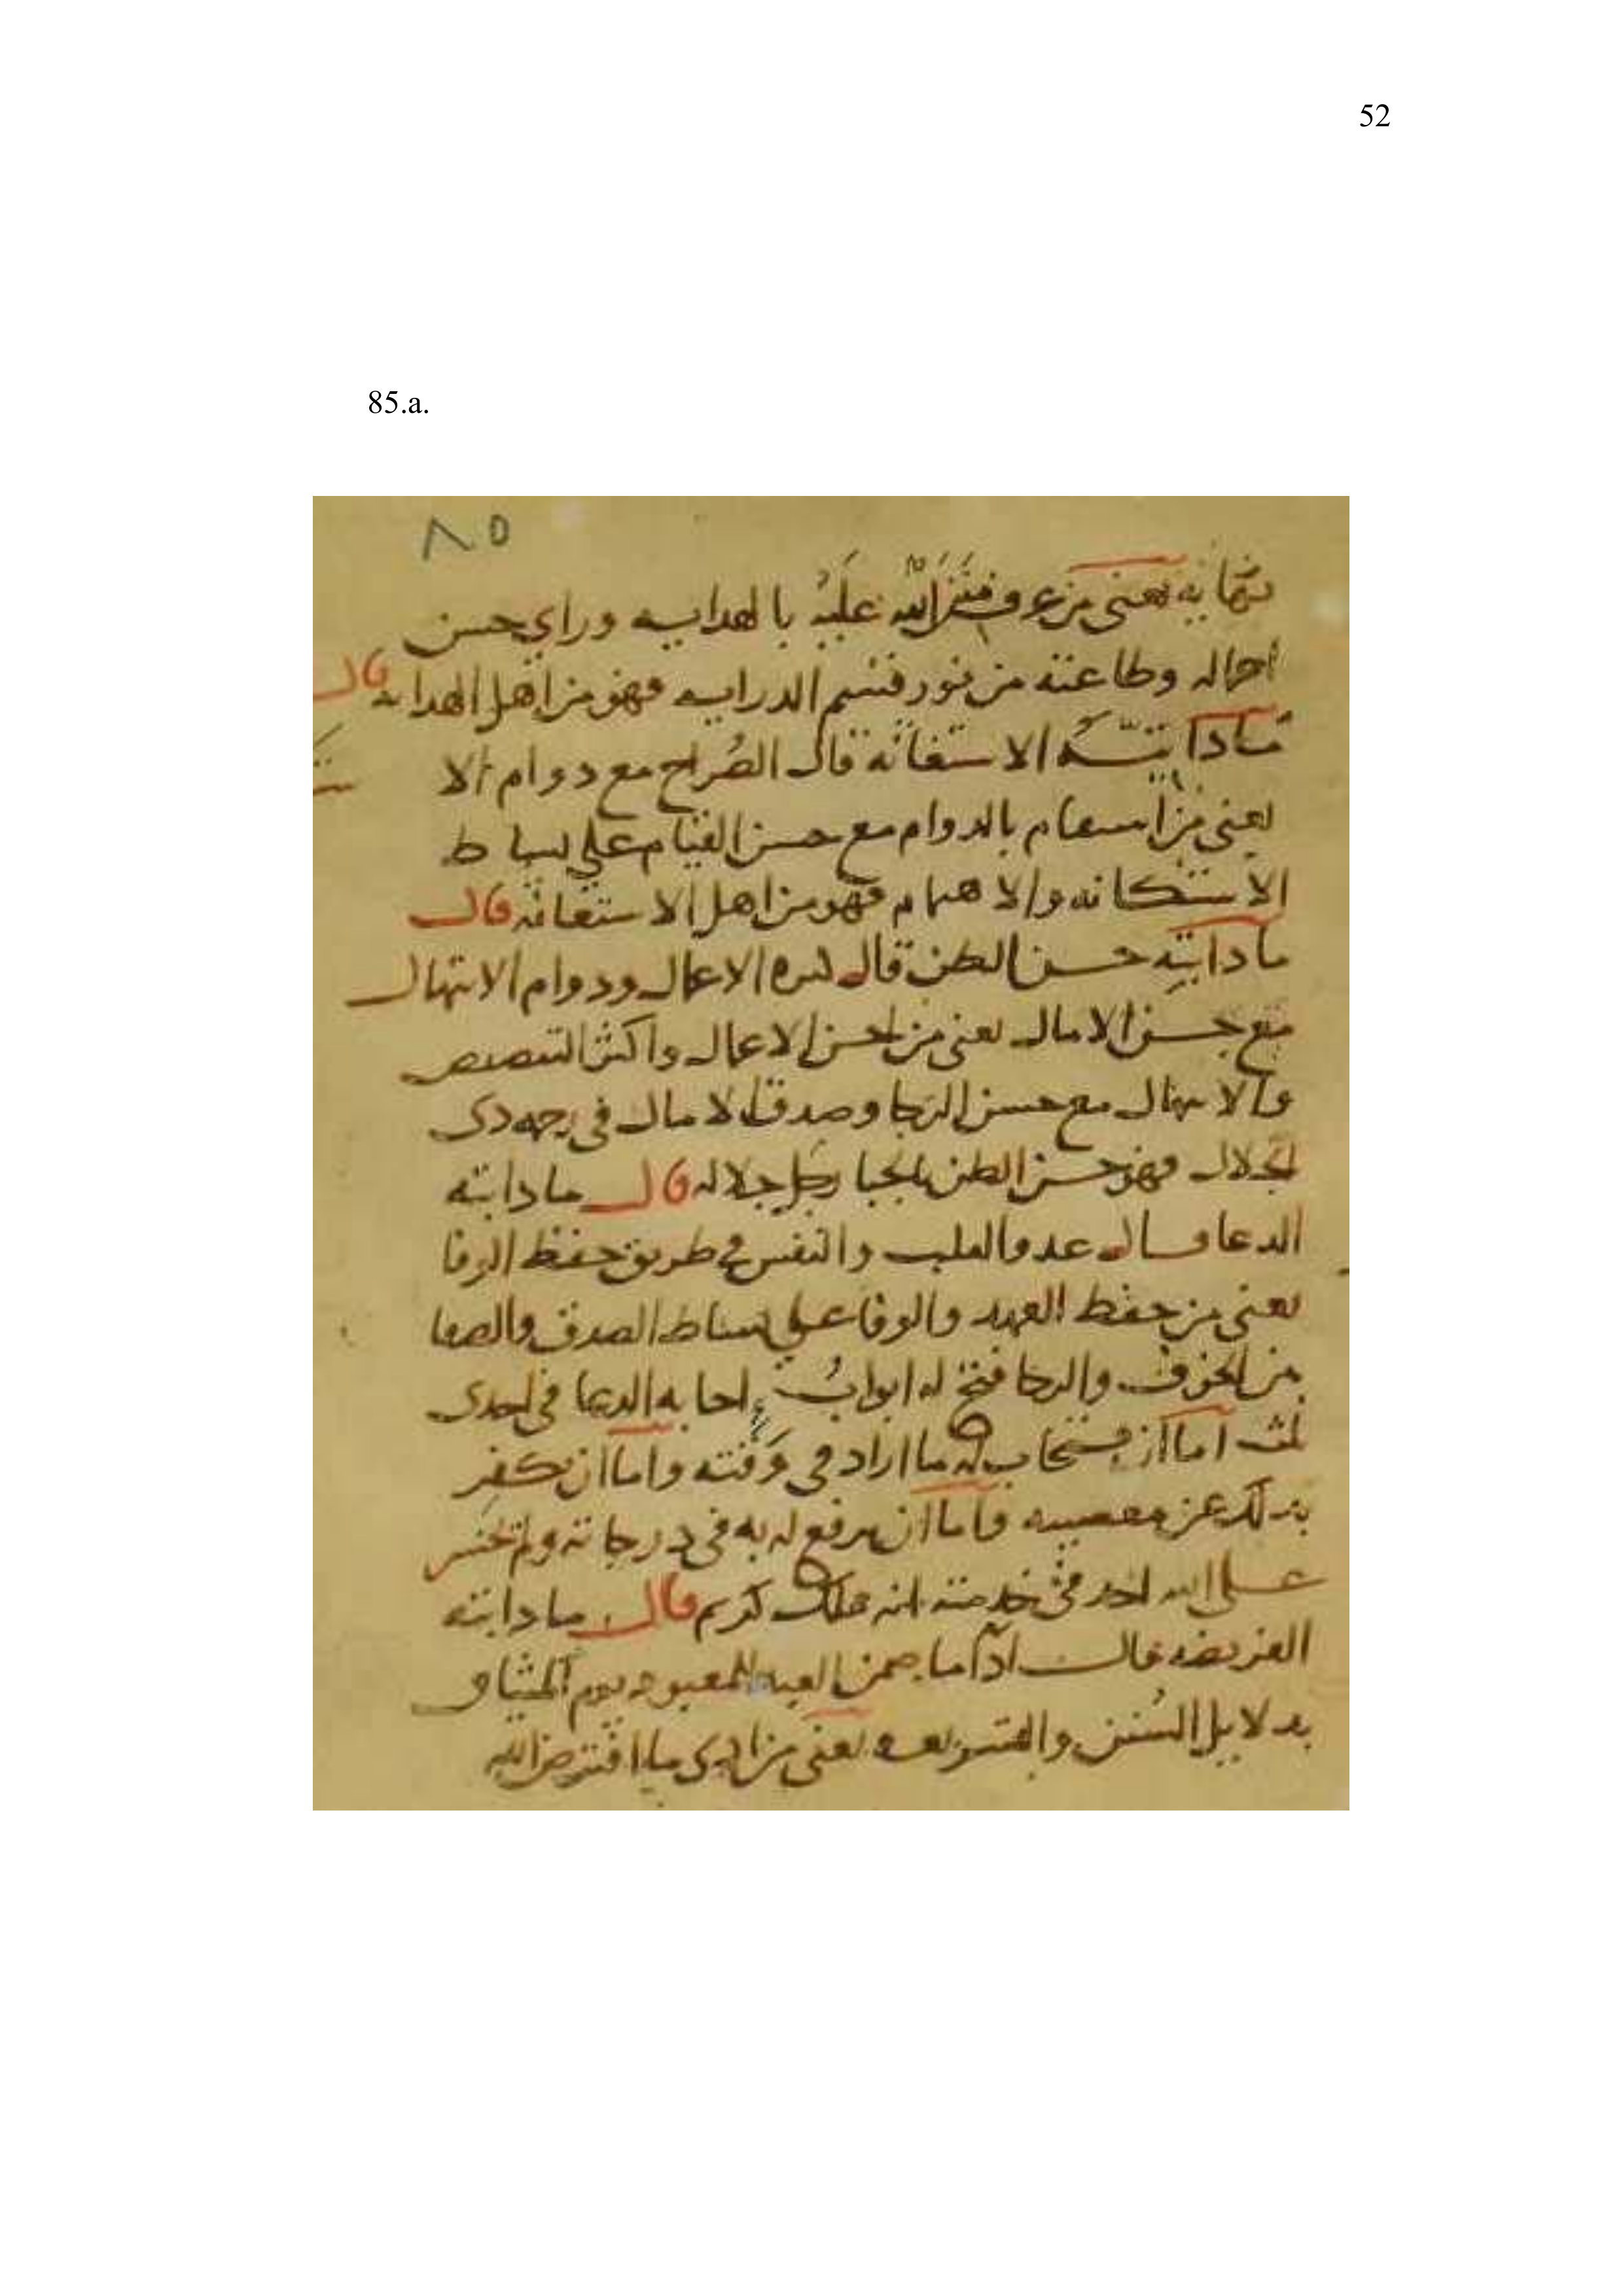 52
85.a.
٨٥
يعنى من عرف منن الله عليه بالهدايه وراى حسن
احواله وطاعته من نور قسم الدرايه فهو من اهل الهدايه قال
ما دايته الاستغاثه قال الصراخ مع دوام الا
يعنى من استقام بالدوام مع حسن القيام على بساط
الاستكانه والاهتمام فهو من اهل الاستغاثه قال
ما دايته حسن الظن قال كثره الاعمال ودوام الابتهال
مع حسن الامال يعنى من احسن الاعمال واكثر
والابتهال مع حسن الرجا وصدق الامال فى رحمه ذى
الجلال فهو حسن الظن بالجبار جل جلاله قال ما دايته
الدعا قال القلب والنفس فى طريق حفظ الوفا
يعنى من حفظ العهد والوفا على بساط الصدق والصفا
بين الخوف والرجا فتح له ابواب اجابه الدعا فى احدى
ثلث اما ان يستجاب له ما اراد فى وقته واما ان يكفر
بذلك عن معصيته واما ان يرفع له به فى درجاته ولم يخسر
على الله احد فى خدمته انه ملك كريم قال ما دايته
الفريضه قال ادا ما ضمن العبد للمعبود يوم الميثاق
بدلايل السنن والشريعه يعنى من ادى ما افترض الله